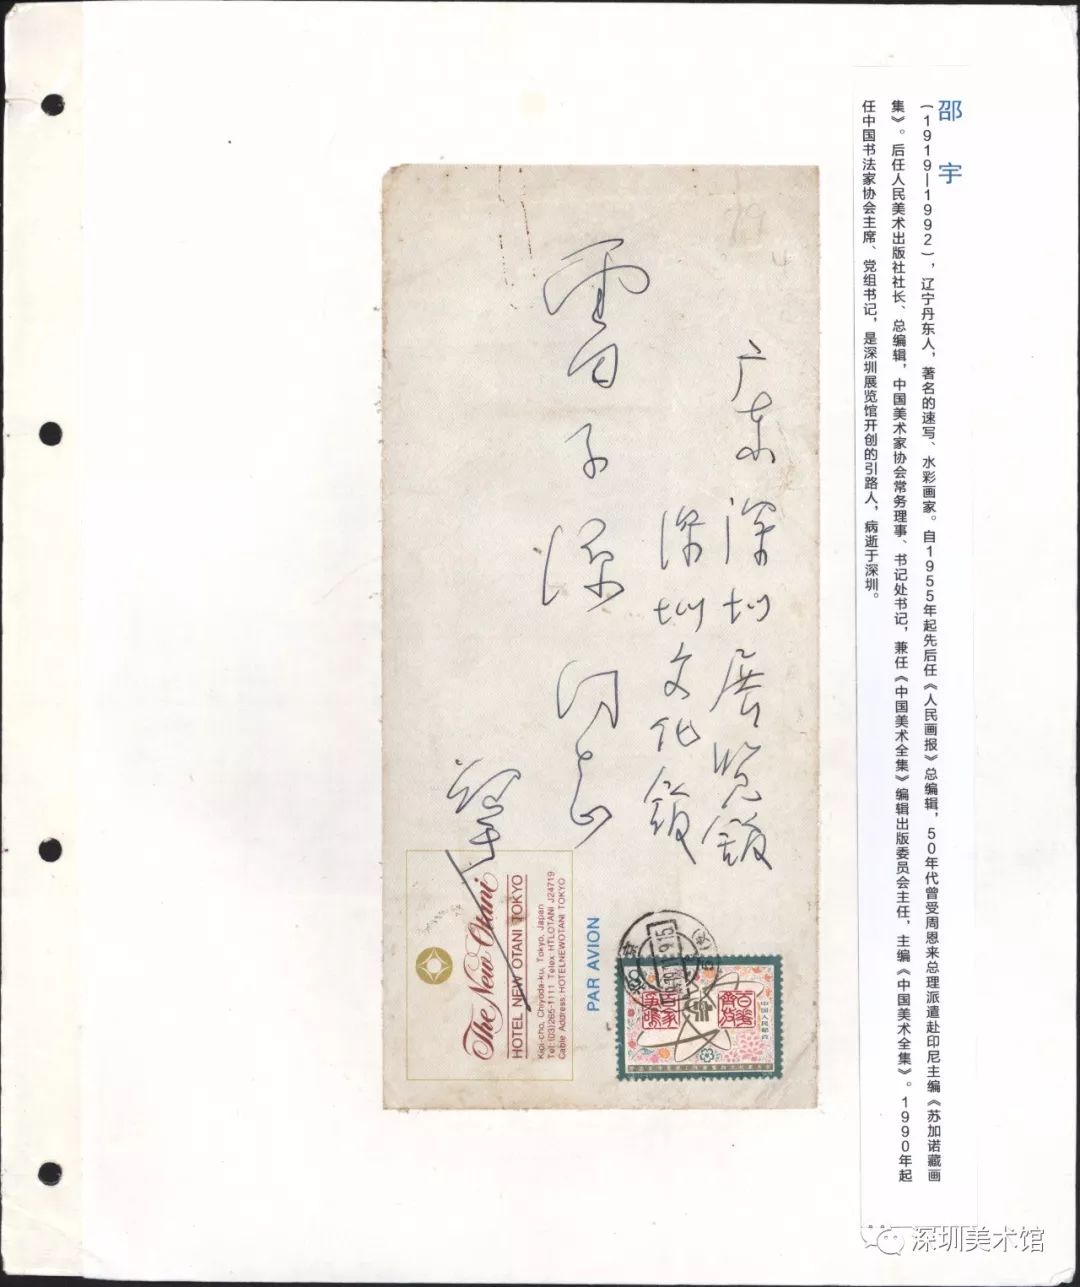 邵 宇
（1919—1992），辽宁丹东人，著名的速写、水彩画家。自1955年起先后任《人民画报》总编辑，50年代曾受周恩来总理派遣赴印尼主编《苏加诺藏画
集》。后任人民美术出版社社长、总编辑，中国美术家协会常务理事、书记处书记，兼任《中国美术全集》编辑出版委员会主任，主编《中国美术全集》。1990年起
任中国书法家协会主席、党组书记，是深圳展览馆开创的引路人，病逝于深圳。
广东深圳展览馆
深圳文化馆
雷子源同志
The New Otani
HOTEL NEW OTANI TOKYO
Kioi-cho, Chiyoda-ku, Tokyo, Japan
Tel: (03)265-1111 Telex: HTLOTANI J24719
Cable Address: HOTELNEWOTANI TOKYO
PAR AVION
中国人民邮政
百花齐放
百家争鸣
深圳美术馆